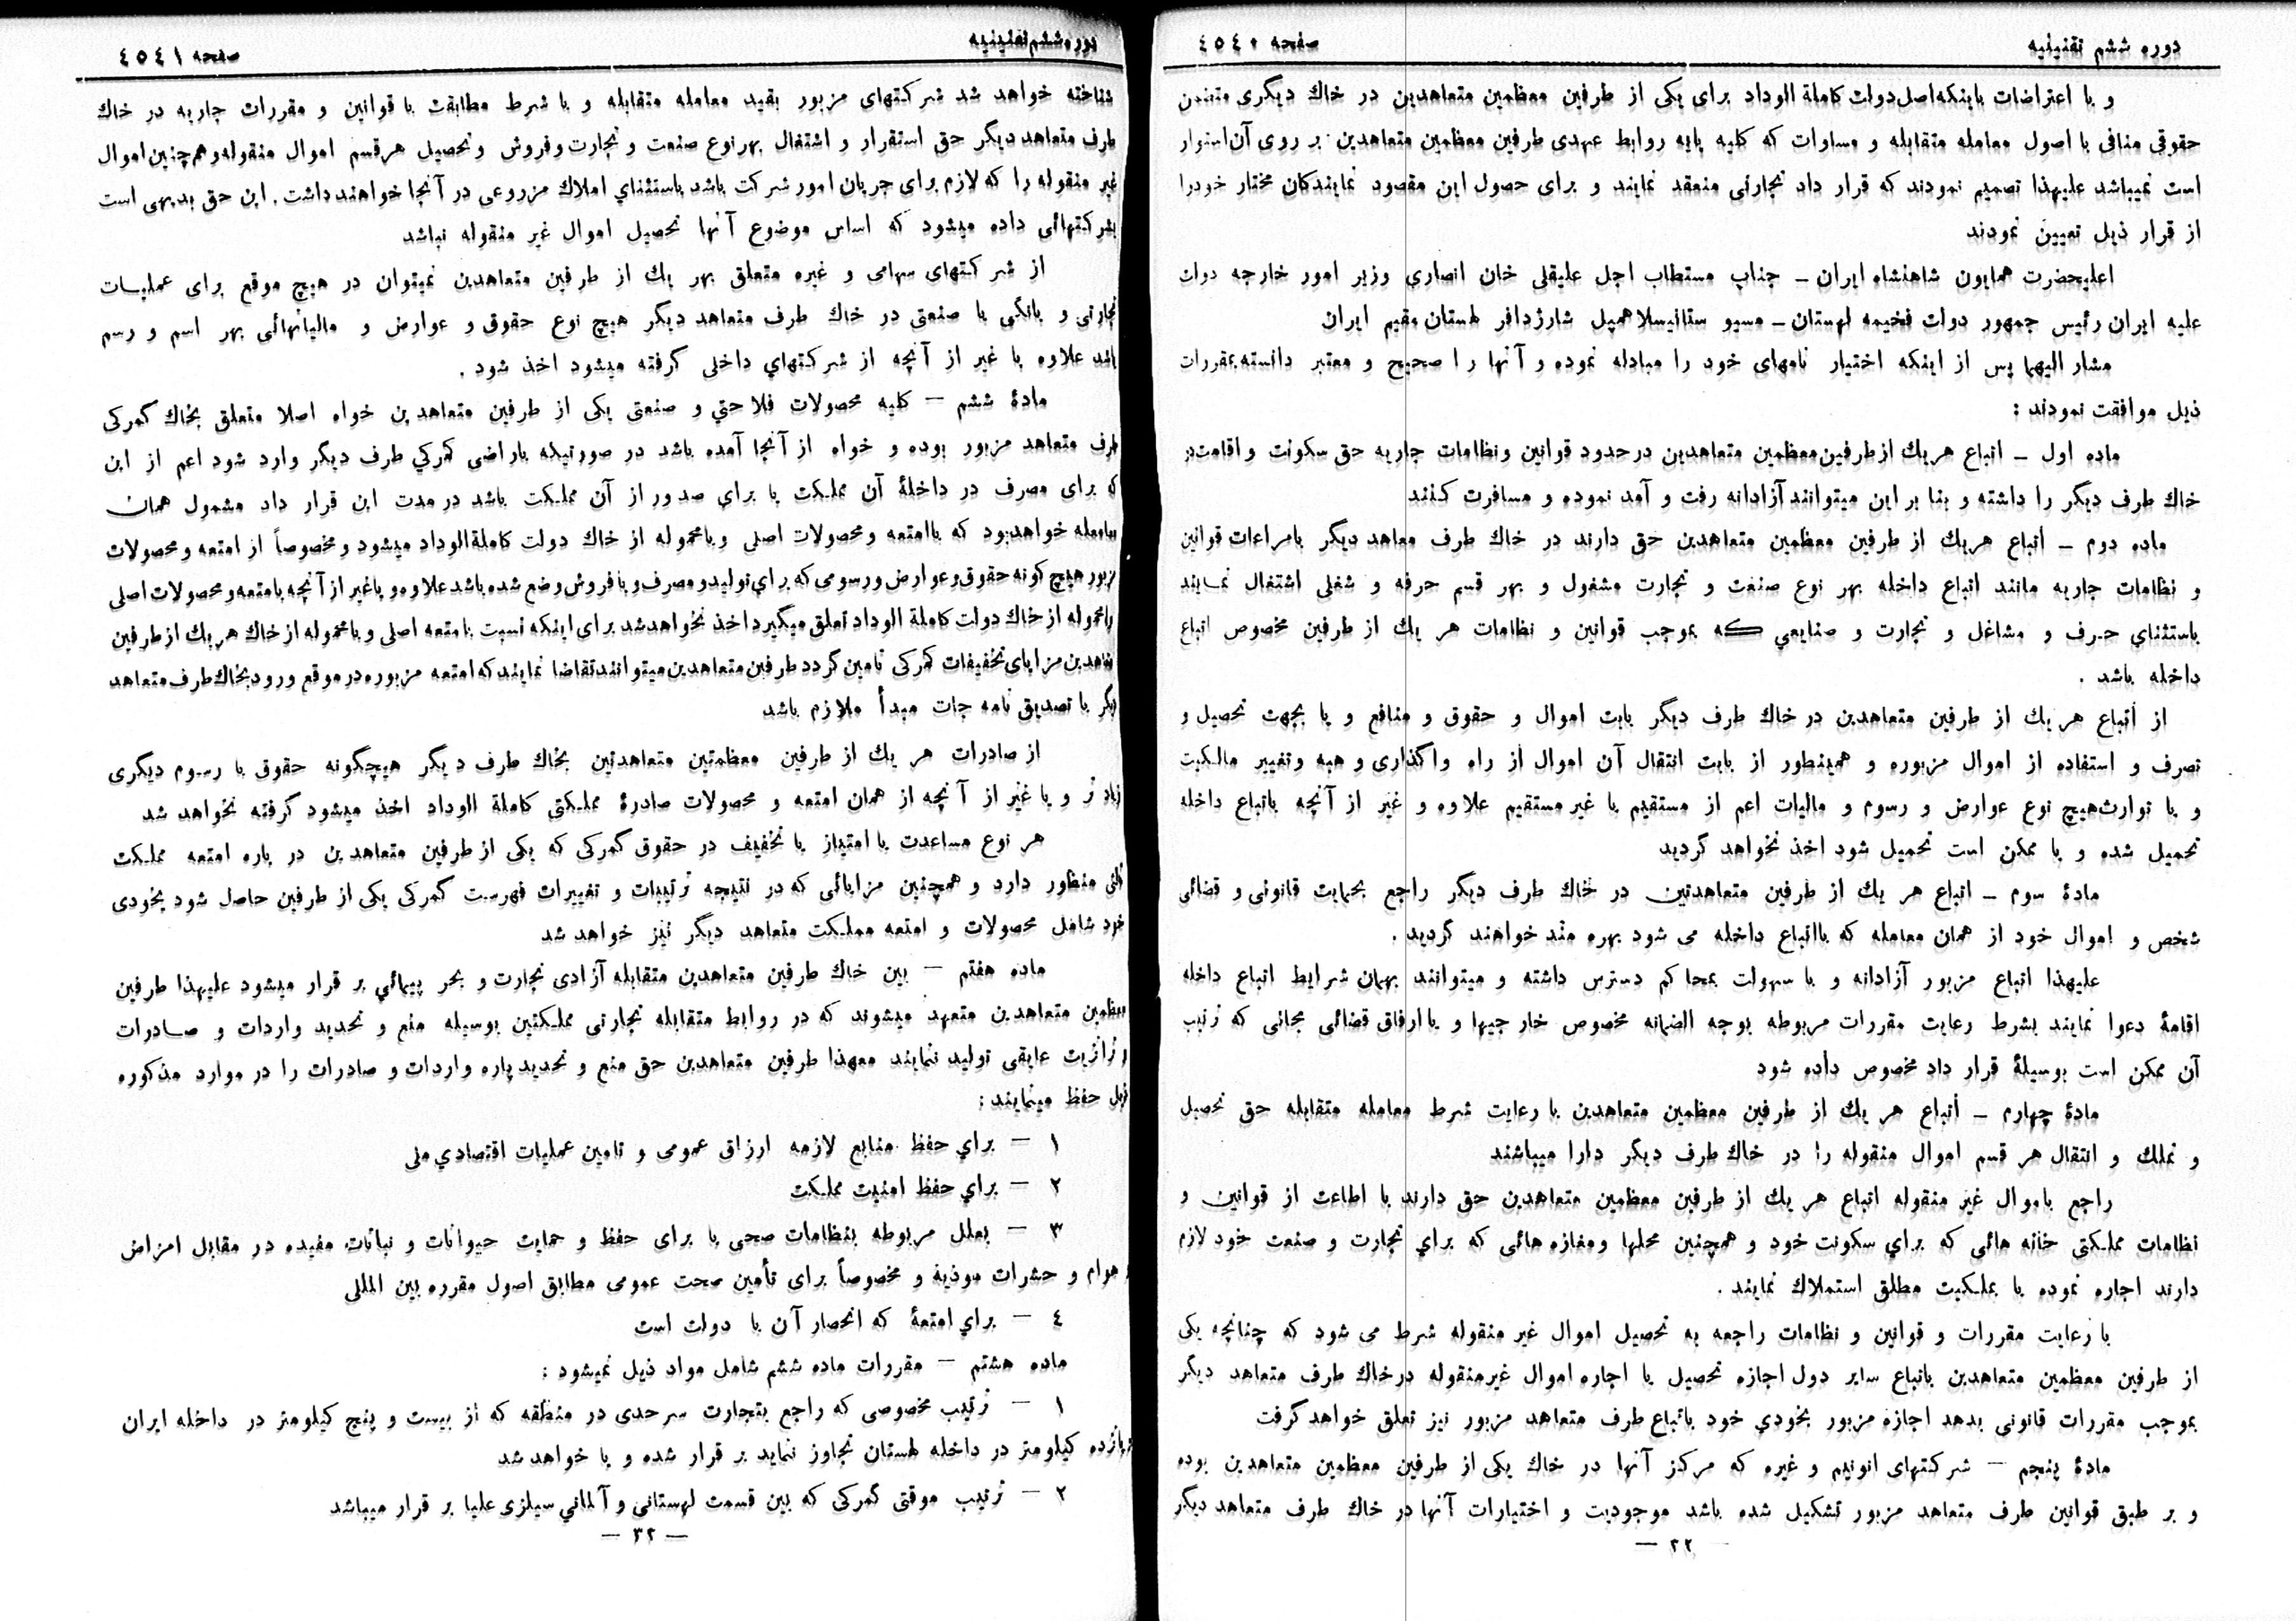 دوره ششم تقنینیه
صفحه ٤٥٤٠
و با اعتراضات باینکه اصل دولت کاملة الوداد برای یکی از طرفین معظمین متعاهدین در خاك دیگری متضمن
حقوقی منافی با اصول معامله متقابله و مساوات که کلیه پایه روابط عهدی طرفین معظمین متعاهدین بر روی آن استوار
است نمیباشد علیهذا تصمیم نمودند که قرار داد تجارتی منعقد نمایند و برای حصول این مقصود نمایندکان مختار خودرا
از قرار ذیل تعیین نمودند
اعلیحضرت همایون شاهنشاه ایران ـ جناب مستطاب اجل علیقلی خان انصاری وزیر امور خارجه دولت
علیه ایران رئیس جمهور دولت فخیمه لهستان ـ مسیو ستانیسلا همپل شارژدافر لهستان مقیم ایران
مشار الیهما پس از اینکه اختیار نامهای خود را مبادله نموده و آنها را صحیح و معتبر دانسته بمقررات
ذیل موافقت نمودند :
ماده اول ـ اتباع هریك از طرفین معظمین متعاهدین در حدود قوانین و نظامات جاریه حق سکونت و اقامت در
خاك طرف دیگر را داشته و بنا بر این میتوانند آزادانه رفت و آمد نموده و مسافرت کنند
ماده دوم ـ اتباع هریك از طرفین معظمین متعاهدین حق دارند در خاك طرف معاهد دیگر بامراعات قوانین
و نظامات جاریه مانند اتباع داخله بهر نوع صنعت و تجارت مشغول و بهر قسم حرفه و شغلی اشتغال نمایند
باستثنای حرف و مشاغل و تجارت و صنایعی که بموجب قوانین و نظامات هر یك از طرفین مخصوص اتباع
داخله باشد .
از اتباع هر یك از طرفین متعاهدین در خاك طرف دیگر بابت اموال و حقوق و منافع و یا بجهت تحصیل و
تصرف و استفاده از اموال مزبوره و همینطور از بابت انتقال آن اموال از راه واگذاری و هبه و تغییر مالکیت
و یا توارث هیچ نوع عوارض و رسوم و مالیات اعم از مستقیم یا غیر مستقیم علاوه و غیر از آنچه باتباع داخله
تحمیل شده و یا ممکن است تحمیل شود اخذ نخواهد گردید
مادۀ سوم ـ اتباع هر یك از طرفین متعاهدتین در خاك طرف دیگر راجع بحمایت قانونی و قضائی
شخص و اموال خود از همان معامله که باتباع داخله می شود بهره مند خواهند گردید .
علیهذا اتباع مزبور آزادانه و با سهولت بمحاکم دسترس داشته و میتوانند بهمان شرایط اتباع داخله
اقامۀ دعوا نمایند بشرط رعایت مقررات مربوطه بوجه الضمانه مخصوص خارجیها و یا ارفاق قضائی مجانی که ترتیب
آن ممکن است بوسیلۀ قرار داد مخصوص داده شود
مادۀ چهارم ـ اتباع هر یك از طرفین معظمین متعاهدین با رعایت شرط معامله متقابله حق تحصیل
و تملك و انتقال هر قسم اموال منقوله را در خاك طرف دیگر دارا میباشند
راجع باموال غیر منقوله اتباع هر یك از طرفین معظمین متعاهدین حق دارند با اطاعت از قوانین و
نظامات مملکتی خانه هائی که برای سکونت خود و همچنین محلها و مغازه هائی که برای تجارت و صنعت خود لازم
دارند اجاره نموده یا بملکیت مطلق استملاك نمایند .
با رعایت مقررات و قوانین و نظامات راجعه به تحصیل اموال غیر منقوله شرط می شود که چنانچه یکی
از طرفین معظمین متعاهدین باتباع سایر دول اجازه تحصیل یا اجاره اموال غیرمنقوله درخاك طرف متعاهد دیگر
بموجب مقررات قانونی بدهد اجازه مزبور بخودی خود باتباع طرف متعاهد مزبور نیز تعلق خواهد گرفت
مادۀ پنجم — شرکتهای انونیم و غیره که مرکز آنها در خاك یکی از طرفین معظمین متعاهدین بوده
و بر طبق قوانین طرف متعاهد مزبور تشکیل شده باشد موجودیت و اختیارات آنها در خاك طرف متعاهد دیگر
٢٢ —
دوره ششم تقنینیه
صفحه ٤٥٤١
شناخته خواهد شد شرکتهای مزبور بقید معامله متقابله و با شرط مطابقت با قوانین و مقررات جاریه در خاك
طرف متعاهد دیگر حق استقرار و اشتغال بهر نوع صنعت و تجارت و فروش و تحصیل هرقسم اموال منقوله و هم چنین اموال
غیر منقوله را که لازم برای جریان امور شرکت باشد باستثنای املاك مزروعی در آنجا خواهند داشت. این حق بدیهی است
بشرکتهائی داده میشود که اساس موضوع آنها تحصیل اموال غیر منقوله نباشد
از شرکتهای سهامی و غیره متعلق بهر یك از طرفین متعاهدین نمیتوان در هیچ موقع برای عملیات
تجارتی و بانکی یا صنعتی در خاك طرف متعاهد دیگر هیچ نوع حقوق و عوارض و مالیاتهائی بهر اسم و رسم
باشد علاوه یا غیر از آنچه از شرکتهای داخلی گرفته میشود اخذ شود .
مادۀ ششم — کلیه محصولات فلاحتی و صنعتی یکی از طرفین متعاهدین خواه اصلا متعلق بخاك گمرکی
طرف متعاهد مزبور بوده و خواه از آنجا آمده باشد در صورتیکه باراضی گمرکی طرف دیگر وارد شود اعم از این
که برای مصرف در داخلۀ آن مملکت یا برای صدور از آن مملکت باشد در مدت این قرار داد مشمول همان
معامله خواهد بود که باامتعه و محصولات اصلی و یا محموله از خاك دولت کاملة الوداد میشود و مخصوصاً از امتعه و محصولات
مزبور هیچ گونه حقوق و عوارض و رسومی که برای تولید و مصرف و یا فروش وضع شده باشد علاوه و یا غیر از آنچه بامتعه و محصولات اصلی
یا محموله از خاك دولت کاملة الوداد تعلق میگیرد اخذ نخواهد شد برای اینکه نسبت بامتعه اصلی و یا محموله از خاك هر یك از طرفین
متعاهدین مزایای تخفیفات گمرکی تامین گردد طرفین متعاهدین میتوانند تقاضا نمایند که امتعه مزبوره در موقع ورود بخاك طرف متعاهد
دیگر با تصدیق نامه جات مبدأ ملازم باشد
از صادرات هر یك از طرفین معظمتین متعاهدتین بخاك طرف دیگر هیچگونه حقوق یا رسوم دیگری
زیادتر و یا غیر از آنچه از همان امتعه و محصولات صادرۀ مملکتی کاملة الوداد اخذ میشود گرفته نخواهد شد
هر نوع مساعدت یا امتیاز یا تخفیف در حقوق گمرکی که یکی از طرفین متعاهدین در باره امتعه مملکت
ثالثی منظور دارد و همچنین مزایائی که در نتیجه ترتیبات و تغییرات فهرست گمرکی یکی از طرفین حاصل شود بخودی
خود شامل محصولات و امتعه مملکت متعاهد دیگر نیز خواهد شد
ماده هفتم — بین خاك طرفین متعاهدین متقابله آزادی تجارت و بحر پیمائی بر قرار میشود علیهذا طرفین
معظمین متعاهدین متعهد میشوند که در روابط متقابله تجارتی مملکتین بوسیله منع و تحدید واردات و صادرات
و ترانزیت عایقی تولید ننمایند معهذا طرفین متعاهدین حق منع و تحدید پاره واردات و صادرات را در موارد مذکوره
ذیل حفظ مینمایند :
١ — برای حفظ منابع لازمه ارزاق عمومی و تامین عملیات اقتصادی ملی
٢ — برای حفظ امنیت مملکت
٣ — بعلل مربوطه بنظامات صحی یا برای حفظ و حمایت حیوانات و نباتات مفیده در مقابل امراض
و هوام و حشرات موذیه و مخصوصاً برای تأمین صحت عمومی مطابق اصول مقرره بین المللی
٤ — برای امتعۀ که انحصار آن با دولت است
ماده هشتم — مقررات ماده ششم شامل مواد ذیل نمیشود :
١ — ترتیب مخصوصی که راجع بتجارت سرحدی در منطقه که از بیست و پنج کیلومتر در داخله ایران
و پانزده کیلومتر در داخله لهستان تجاوز ننماید بر قرار شده و یا خواهد شد
٢ — ترتیب موقتی گمرکی که بین قسمت لهستانی و آلمانی سیلزی علیا بر قرار میباشد
— ٣٢ —